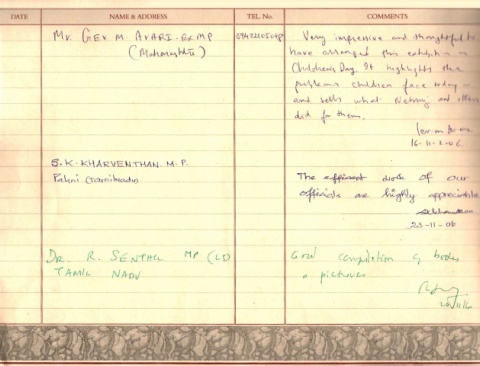 DATE NAME & ADDRESS TEL. No. COMMENTS
Mr. GEV. M. AVARI. EX MP
(Maharashtra)
Very impressive and thoughtful to
have arranged this exhibition on
Children's Day. It highlights the
problems children face today
and tells what Nehruji and others
did for them.
S. K. KHARVENTHAN. M. P.
Palani (Tamilnadu)
The efficient work of our
officials are highly appreciable
23-11-06
DR. R. SENTHIL MP (LS)
TAMIL NADU
Good compilation of books
& pictures